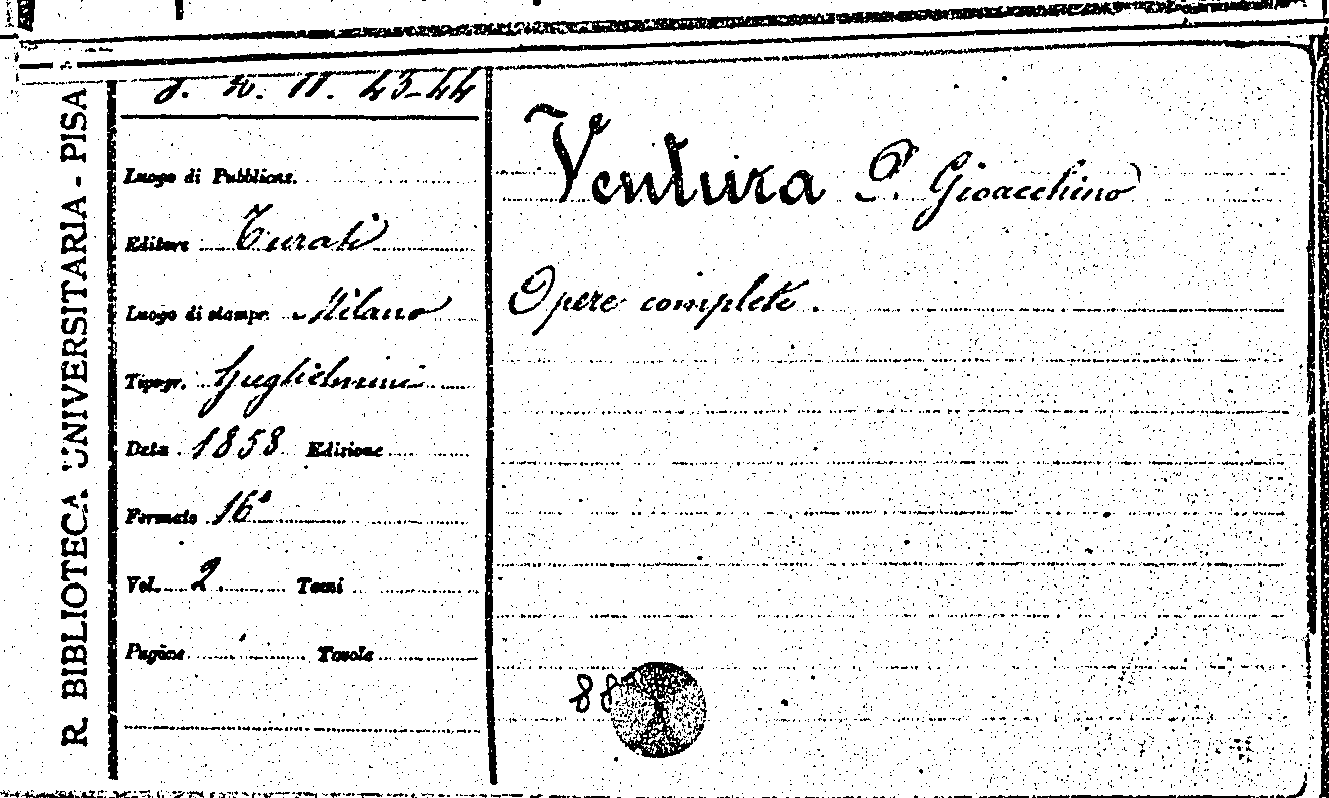 R. BIBLIOTECA UNIVERSITARIA - PISA
11. 43-44
Luogo di Pubblicaz.
Editore Turati
Luogo di stampa. Milano
Tipogr. Guglielmini
Data 1858 Edizione
Formato 16°
Vol. 2 Tomi
Pagine Tavole
Ventura P. Gioacchino
Opere complete.
88